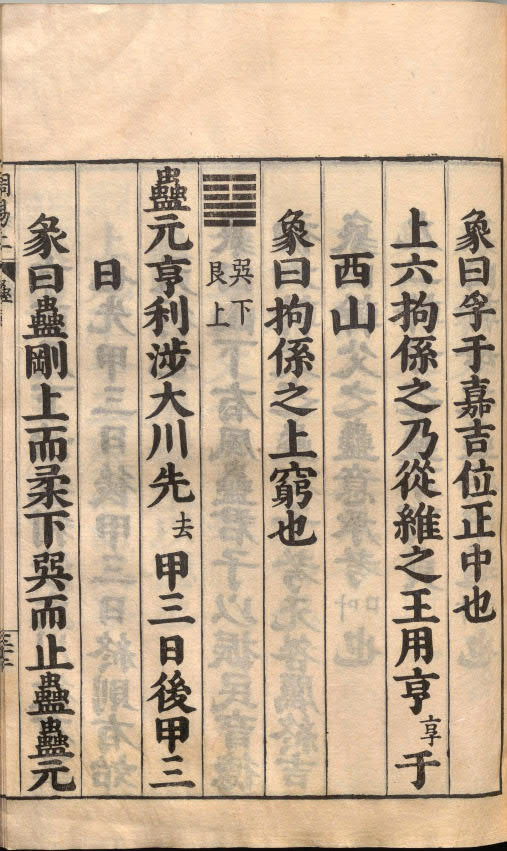 象曰孚于嘉吉位正中也
上六拘係之乃從維之王用亨享于
西山
象曰拘係之上窮也
巽下
艮上
蠱元亨利涉大川先去甲三日後甲三
日
彖曰蠱剛上而柔下巽而止蠱蠱元